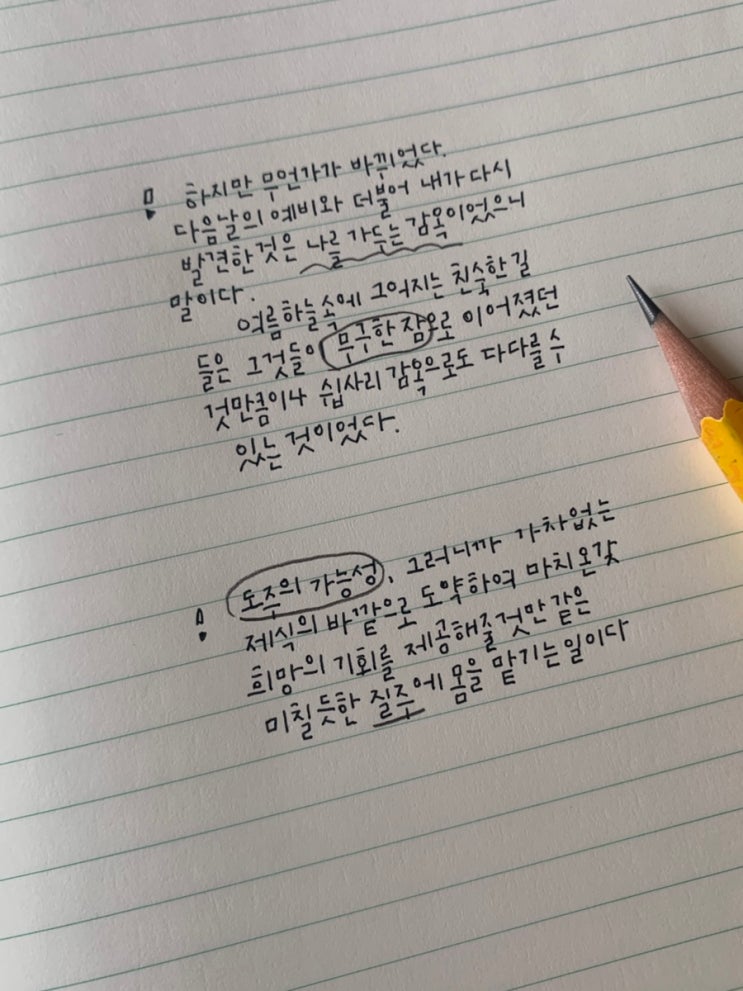 하지만 무언가가 바뀌었다.
다음날의 예비와 더불어 내가 다시
발견한 것은 나를 가두는 감옥이었으니
말이다.
여름하늘 속에 그어지는 친숙한 길
들은 그것들이 무구한 잠으로 이어졌던
것만큼이나 쉽사리 감옥으로도 다다를 수
있는 것이었다.
도주의 가능성, 그러니까 가차없는
제식의 바깥으로 도약하여 마치 온갖
희망의 기회를 제공해줄것만 같은
미칠 듯한 질주에 몸을 맡기는 일이다